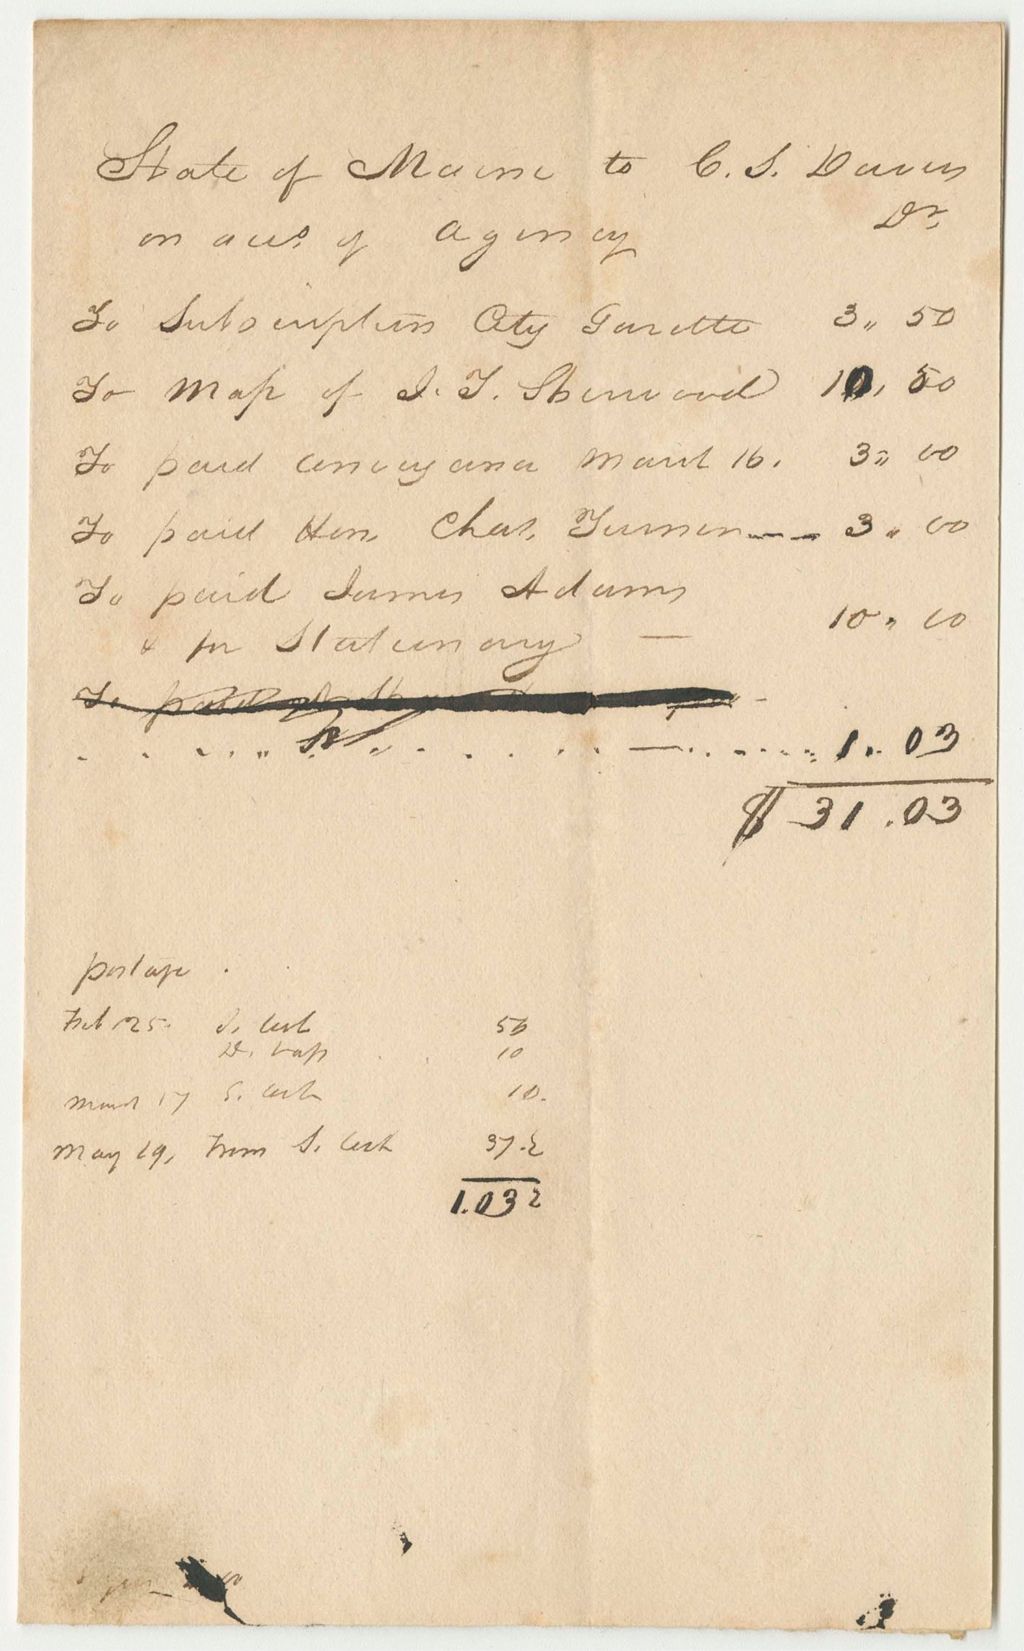 State of Maine to C. S. Daveis
Dr.
on acco. of Agency
To Subscription City Gazette 3,, 50
To Map of I. T. Sherwood 10, 50
To paid conveyance March 16. 3,, 00
To paid Hon. Chas. Turner 3,, 00
To paid James Adams
& for Stationary — 10,, 00
To paid
1.. 03
$ 31.03
postage .
Feb 25. 50
10
March 17 10.
May 19, from S. 37.2
1.03 2